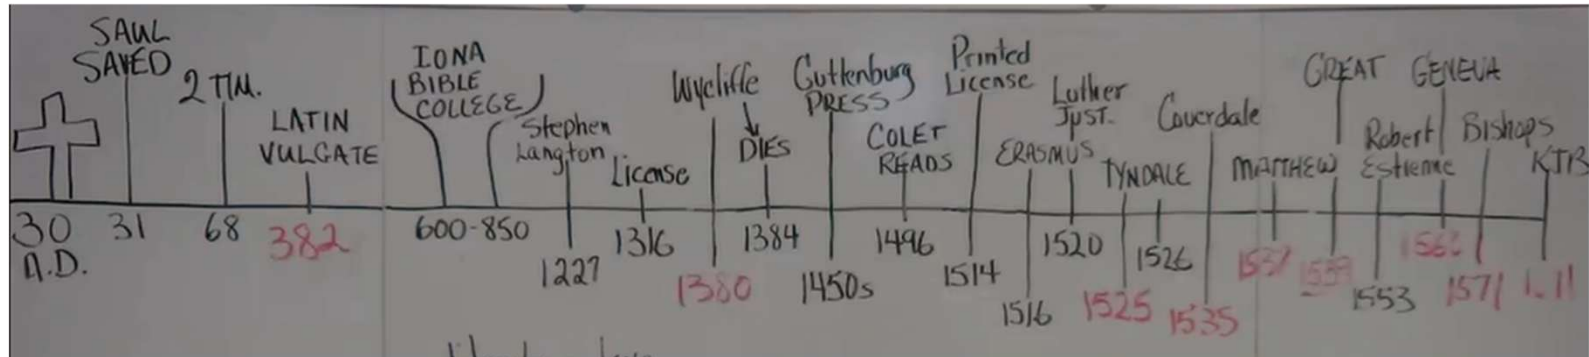 SAUL
SAVED
2 TIM.
LATIN
VULGATE
IONA
BIBLE
COLLEGE
Stephen
Langton
License
Wycliffe
DIES
Guttenburg
PRESS
COLET
READS
Printed
License
ERASMUS
Luther
JUST.
TYNDALE
Coverdale
MATTHEW
GREAT
Robert
Estienne
GENEVA
Bishops
KJB
30
A.D.
31
68
382
600-850
1227
1316
1380
1384
1450s
1496
1514
1516
1520
1525
1526
1535
1553
1571